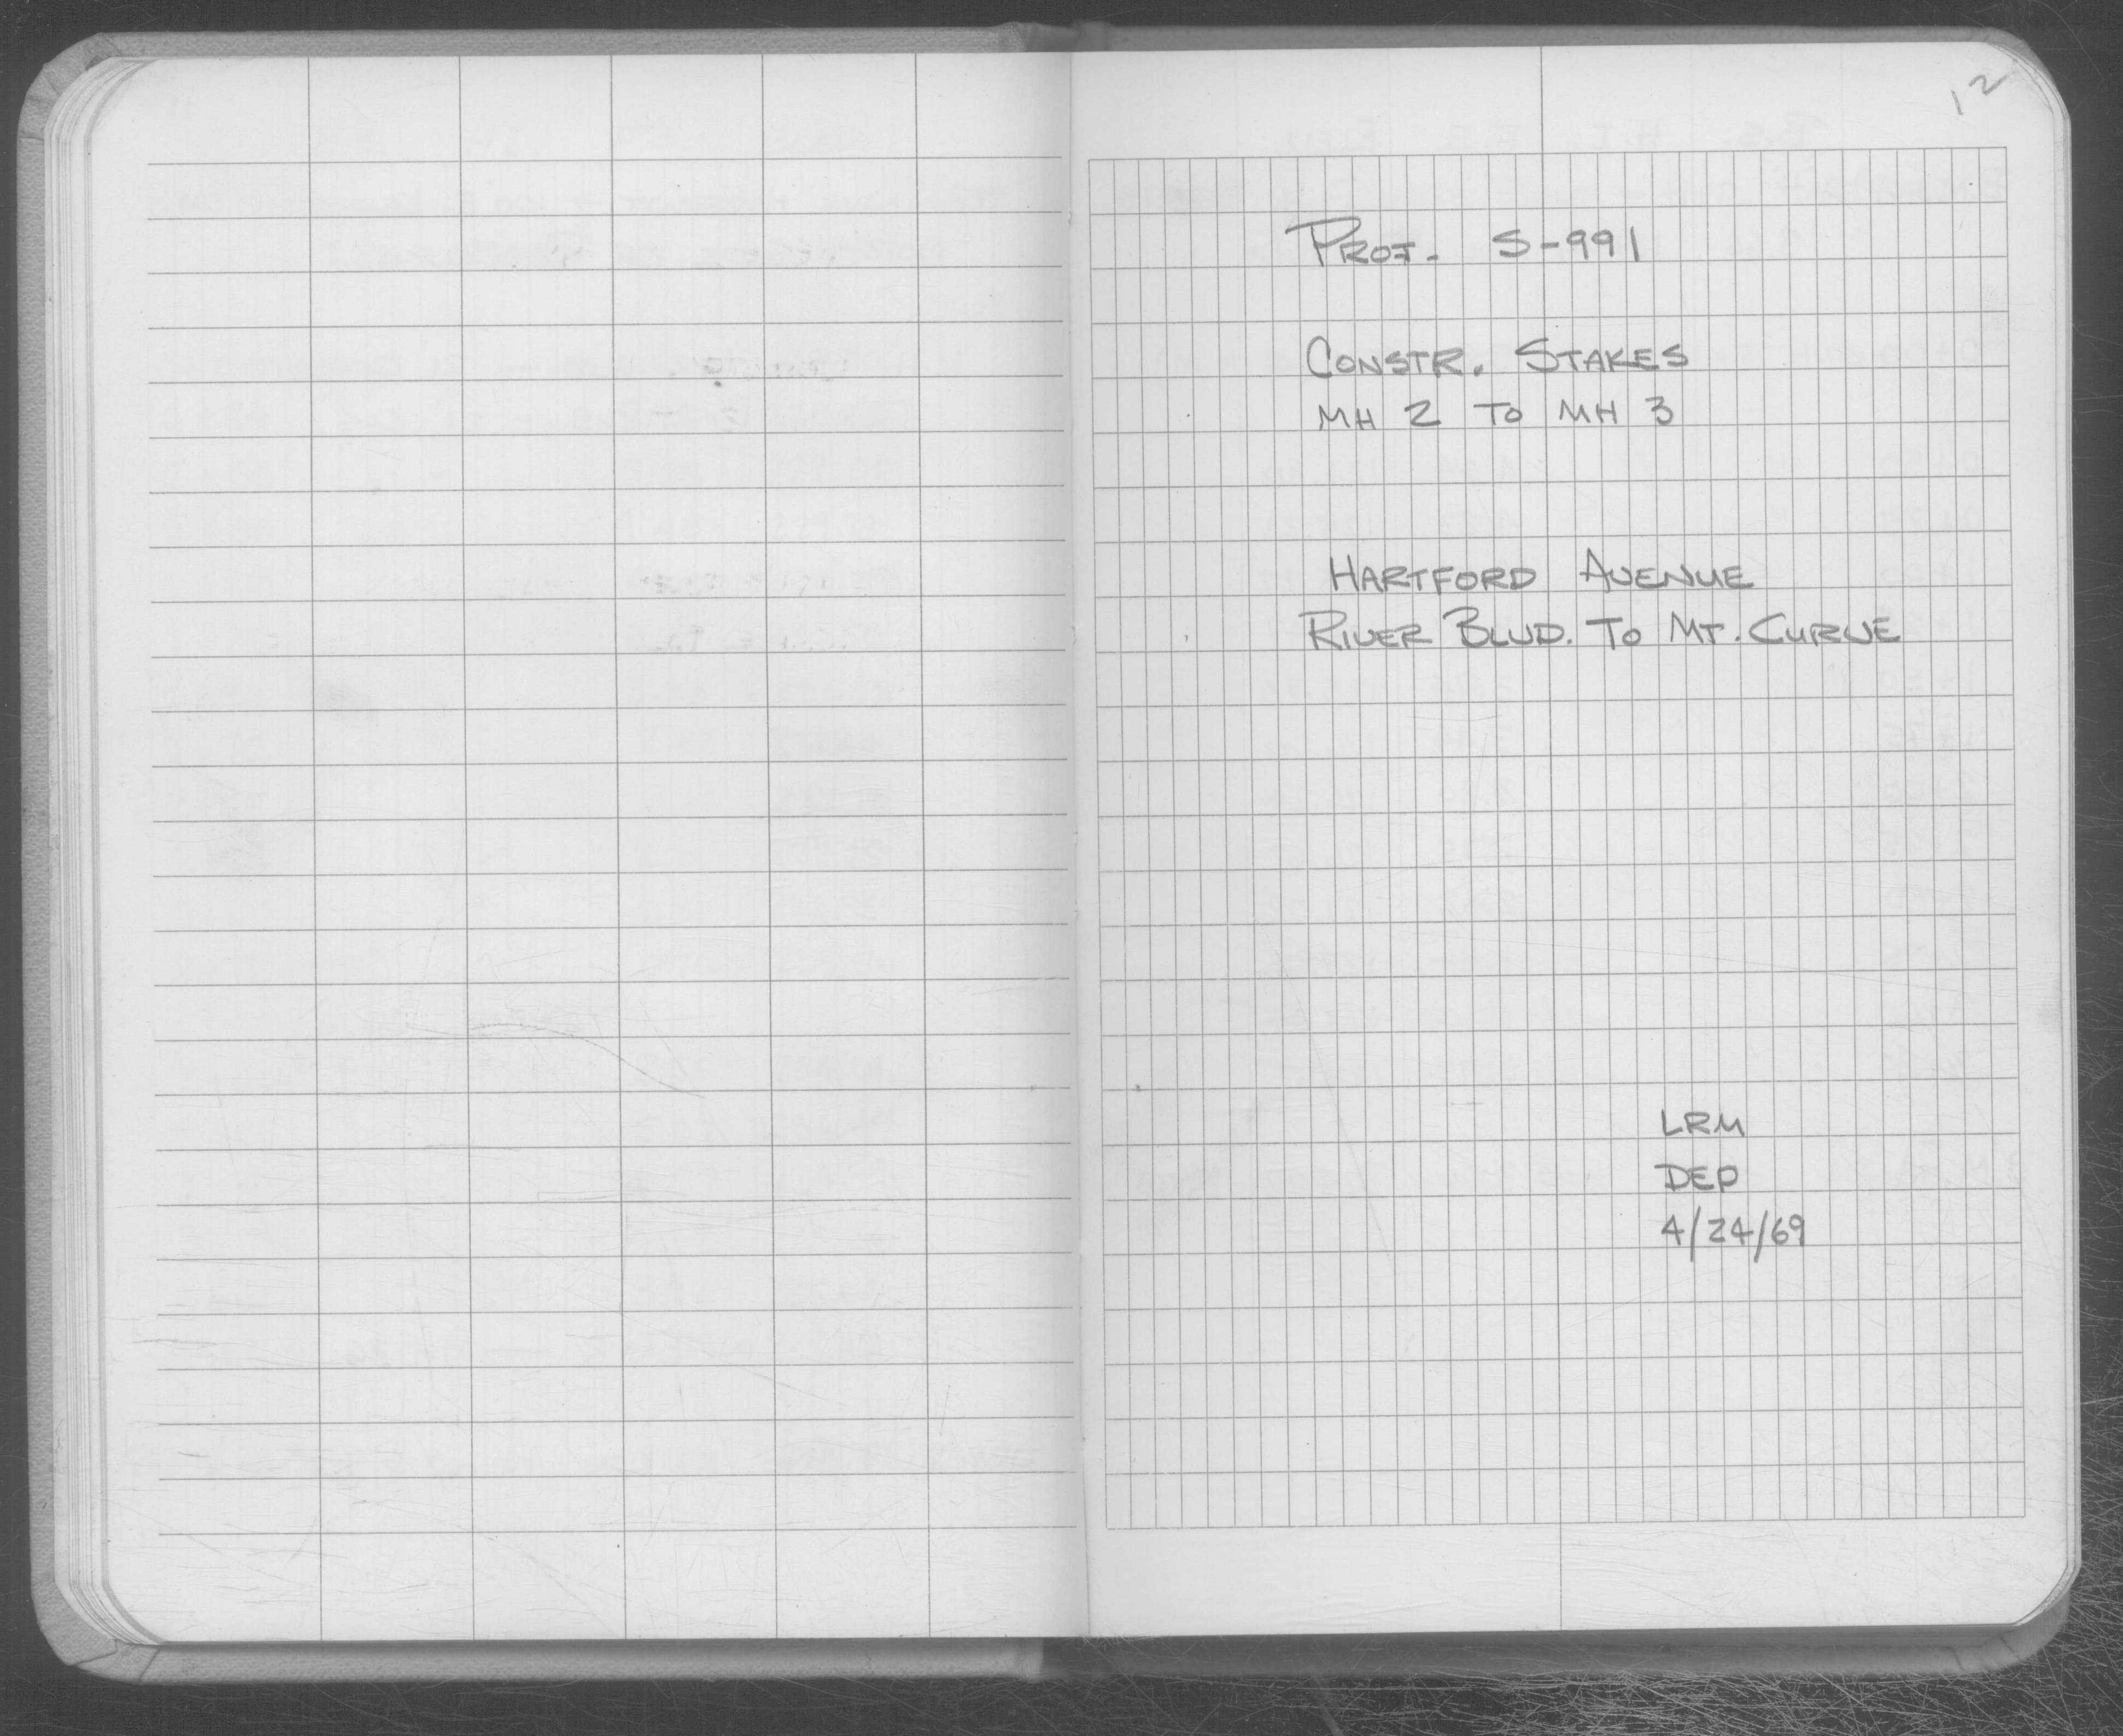 12
PROJ. S-991
CONSTR. STAKES
MH 2 TO MH 3
HARTFORD AVENUE
RIVER BLVD. TO MT. CURVE
LRM
DEP
4/24/69